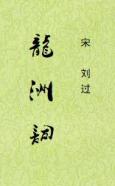 宋 刘过
龍洲詞